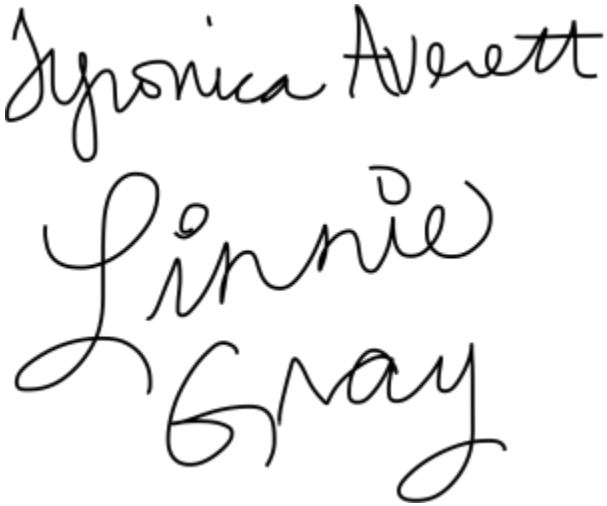 Tyronica Averett
Linnie
Gray